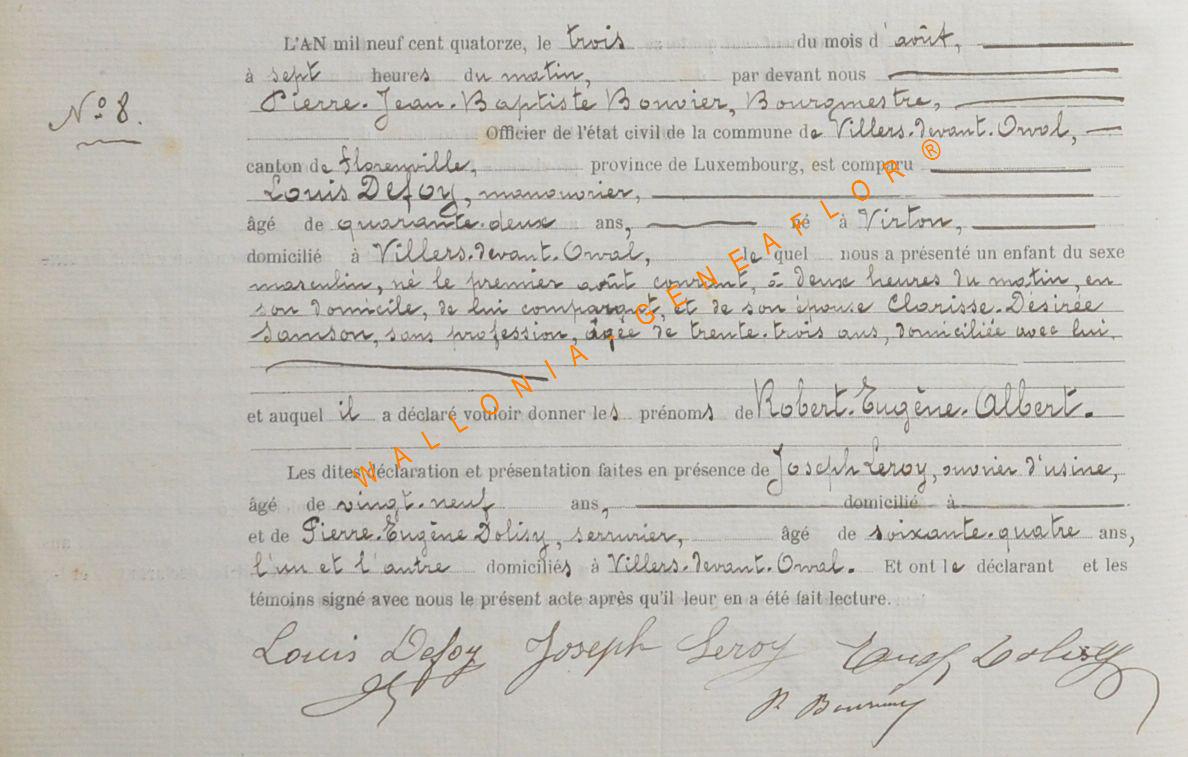 L'AN mil neuf cent quatorze, le trois du mois d'août,
à sept heures du matin, par devant nous
N° 8. Pierre-Jean-Baptiste Bonvier, Bourgmestre,
Officier de l'état civil de la commune de Villers-devant-Orval,
canton de Florenville, province de Luxembourg, est comparu
Louis Defoy, manouvrier,
âgé de quarante-deux ans, né à Virton,
domicilié à Villers-devant-Orval, lequel nous a présenté un enfant du sexe
masculin, né le premier août courant, à deux heures du matin, en
son domicile, de lui comparant, et de son épouse Clarisse-Désirée
Samson, sans profession, âgée de trente-trois ans, domiciliée avec lui,
et auquel il a déclaré vouloir donner les prénoms de Robert-Eugène-Albert.
Les dites déclaration et présentation faites en présence de Joseph Leroy, ouvrier d'usine,
âgé de vingt-neuf ans, domicilié à
et de Pierre-Eugène Dolisy, serrurier, âgé de soixante-quatre ans,
l'un et l'autre domiciliés à Villers-devant-Orval. Et ont le déclarant et les
témoins signé avec nous le présent acte après qu'il leur en a été fait lecture.
Louis Defoy Joseph Leroy Eug Dolisy
P. Bonvier
WALLONIA - GENEAFLOR ®